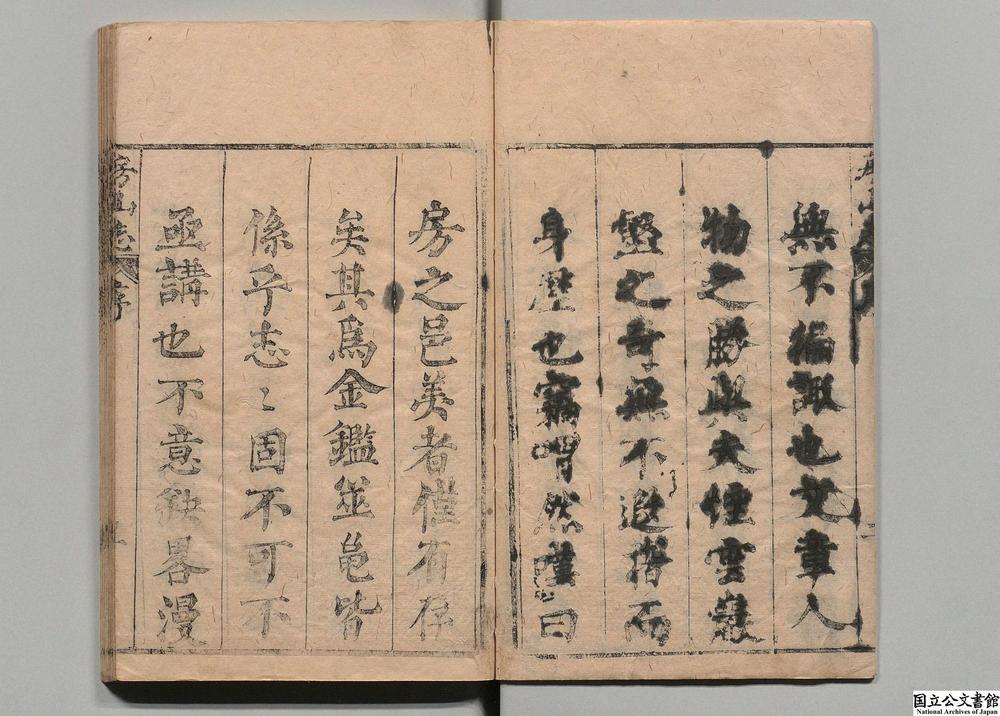 無不徧諏也文章人
物之勝與夫煙雲巖
壑之奇無不遐搜而
身歷也竊喟然嘆曰
房之邑美者僅有存
矣其為金鑑並邑皆
係乎志〻固不可不
亟講也不意缺畧漫
房山志 序
国立公文書館
National Archives of Japan